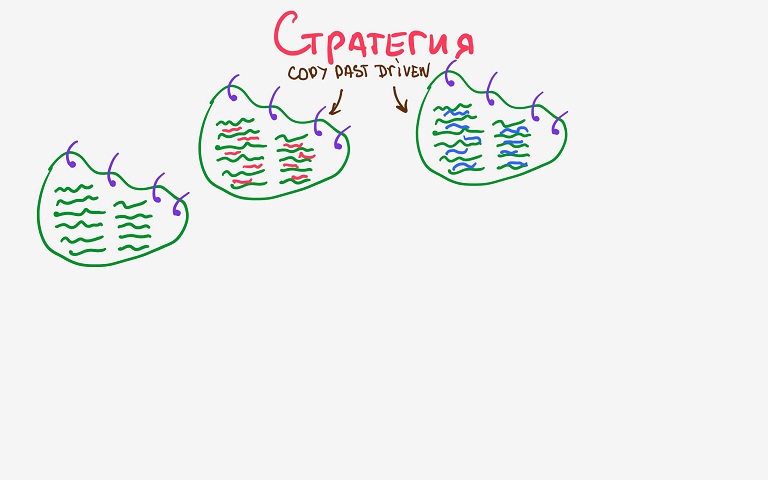 Стратегия
COPY PAST DRIVEN